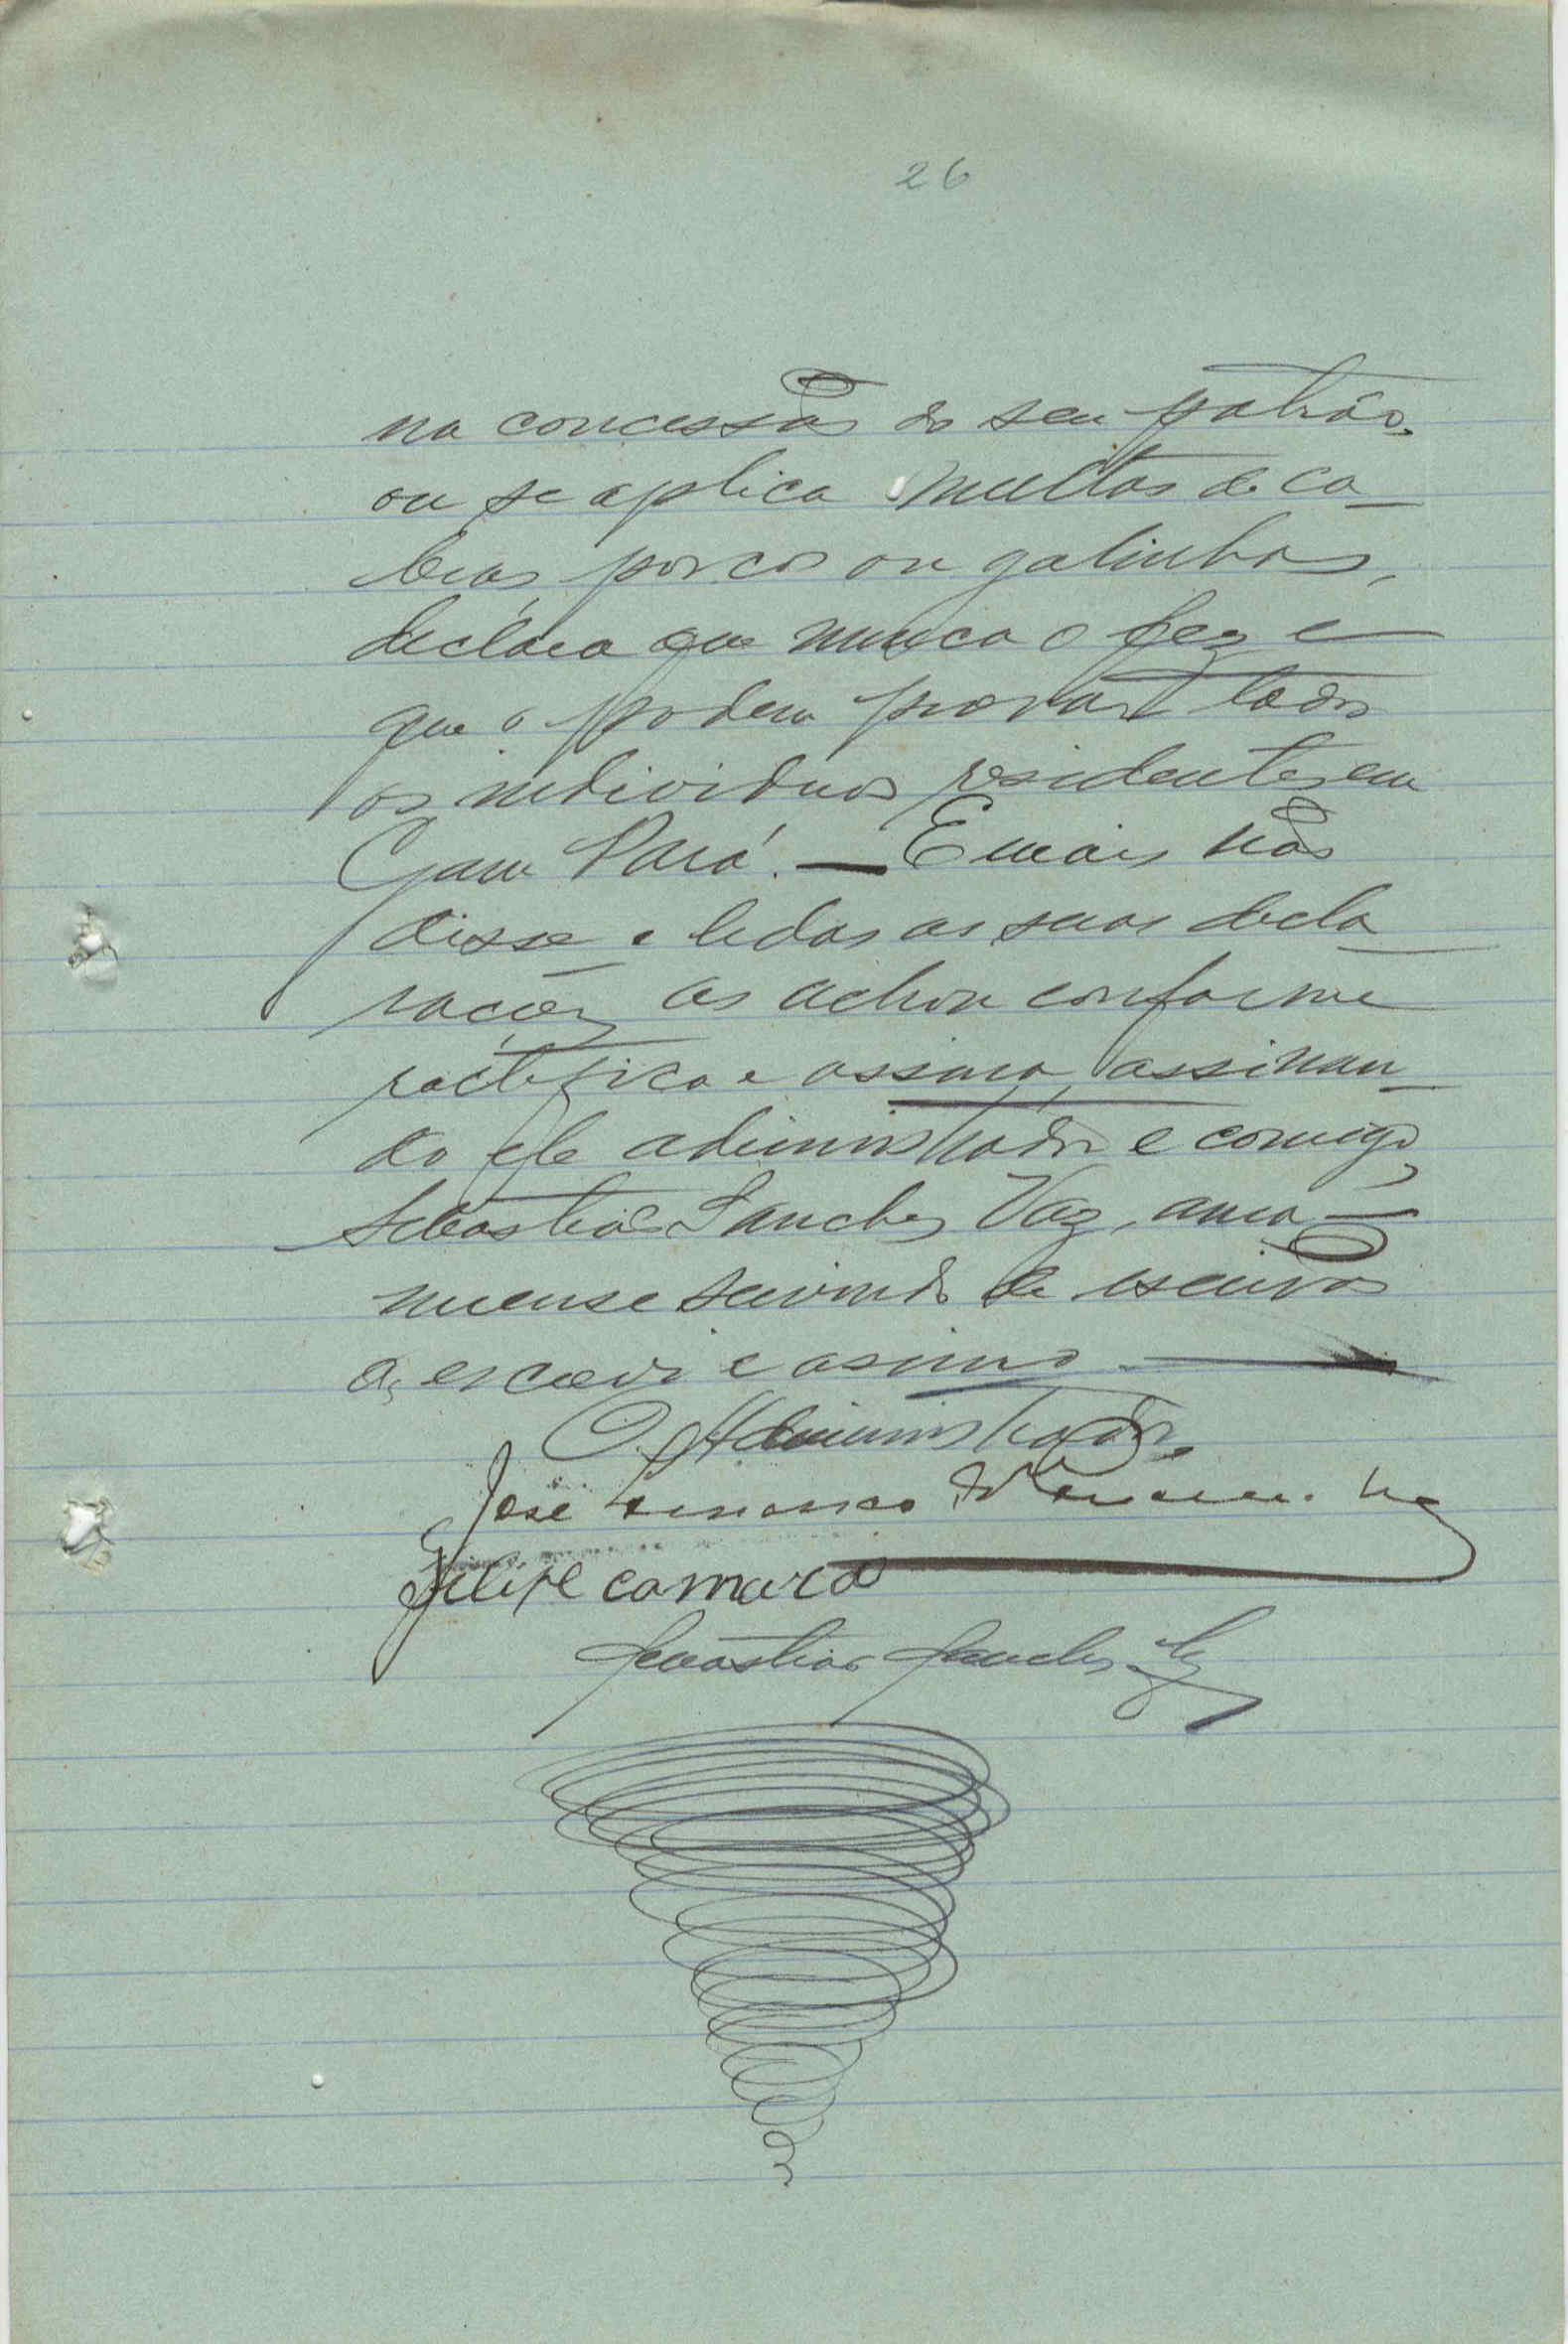 26
na concessão do seu patrão,
ou se aplica multas de ca-
bras, porcos ou galinhas,
declara que nunca o fez e
que o podem provar todos
os individuos residentes em
Gam Pará. — E mais não
disse e lidas as suas decla-
rações as achou conforme
ractifica e assina, assinan-
do ele administrador e comigo,
Sebastião Sanches Vaz, ama-
nuense servindo de escrivão
as escrevi e assino —
O Administrador,
José
Felipe camará
Sebastião Sanches Vaz